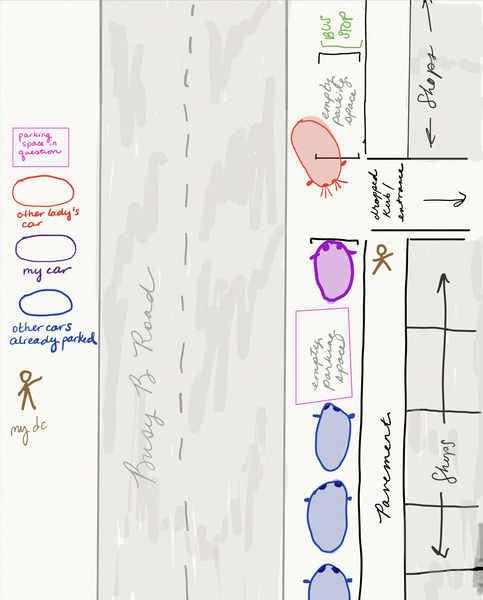 BUS
STOP
empty
parking
space
← Shops →
parking
space in
question
other lady's
car
my car
other cars
already parked
my dc
dropped
kub/
entrance
Busy B Road
empty
parking
space
Pavement
Shops